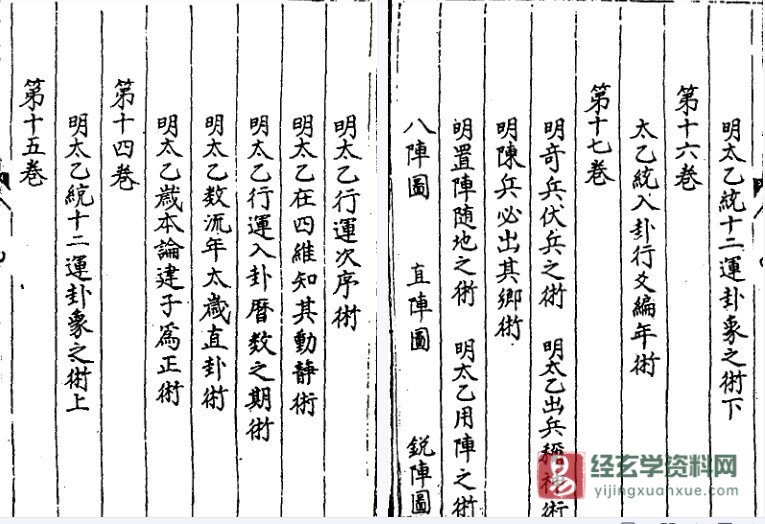 明太乙統十二運卦象之術下
第十六卷
太乙統入卦行爻編年術
第十七卷
明奇兵伏兵之術 明太乙出兵術
明陳兵必出其鄉術
明置陣隨地之術 明太乙用陣之術
八陣圖 直陣圖 銳陣圖
明太乙行運次序術
明太乙在四維知其動靜術
明太乙行運入卦暦数之期術
明太乙数流年太歲直卦術
明太乙歲本論建子爲正術
第十四卷
明太乙統十二運卦象之術上
第十五卷
易
经玄学资料网
yijingxuanxue.com